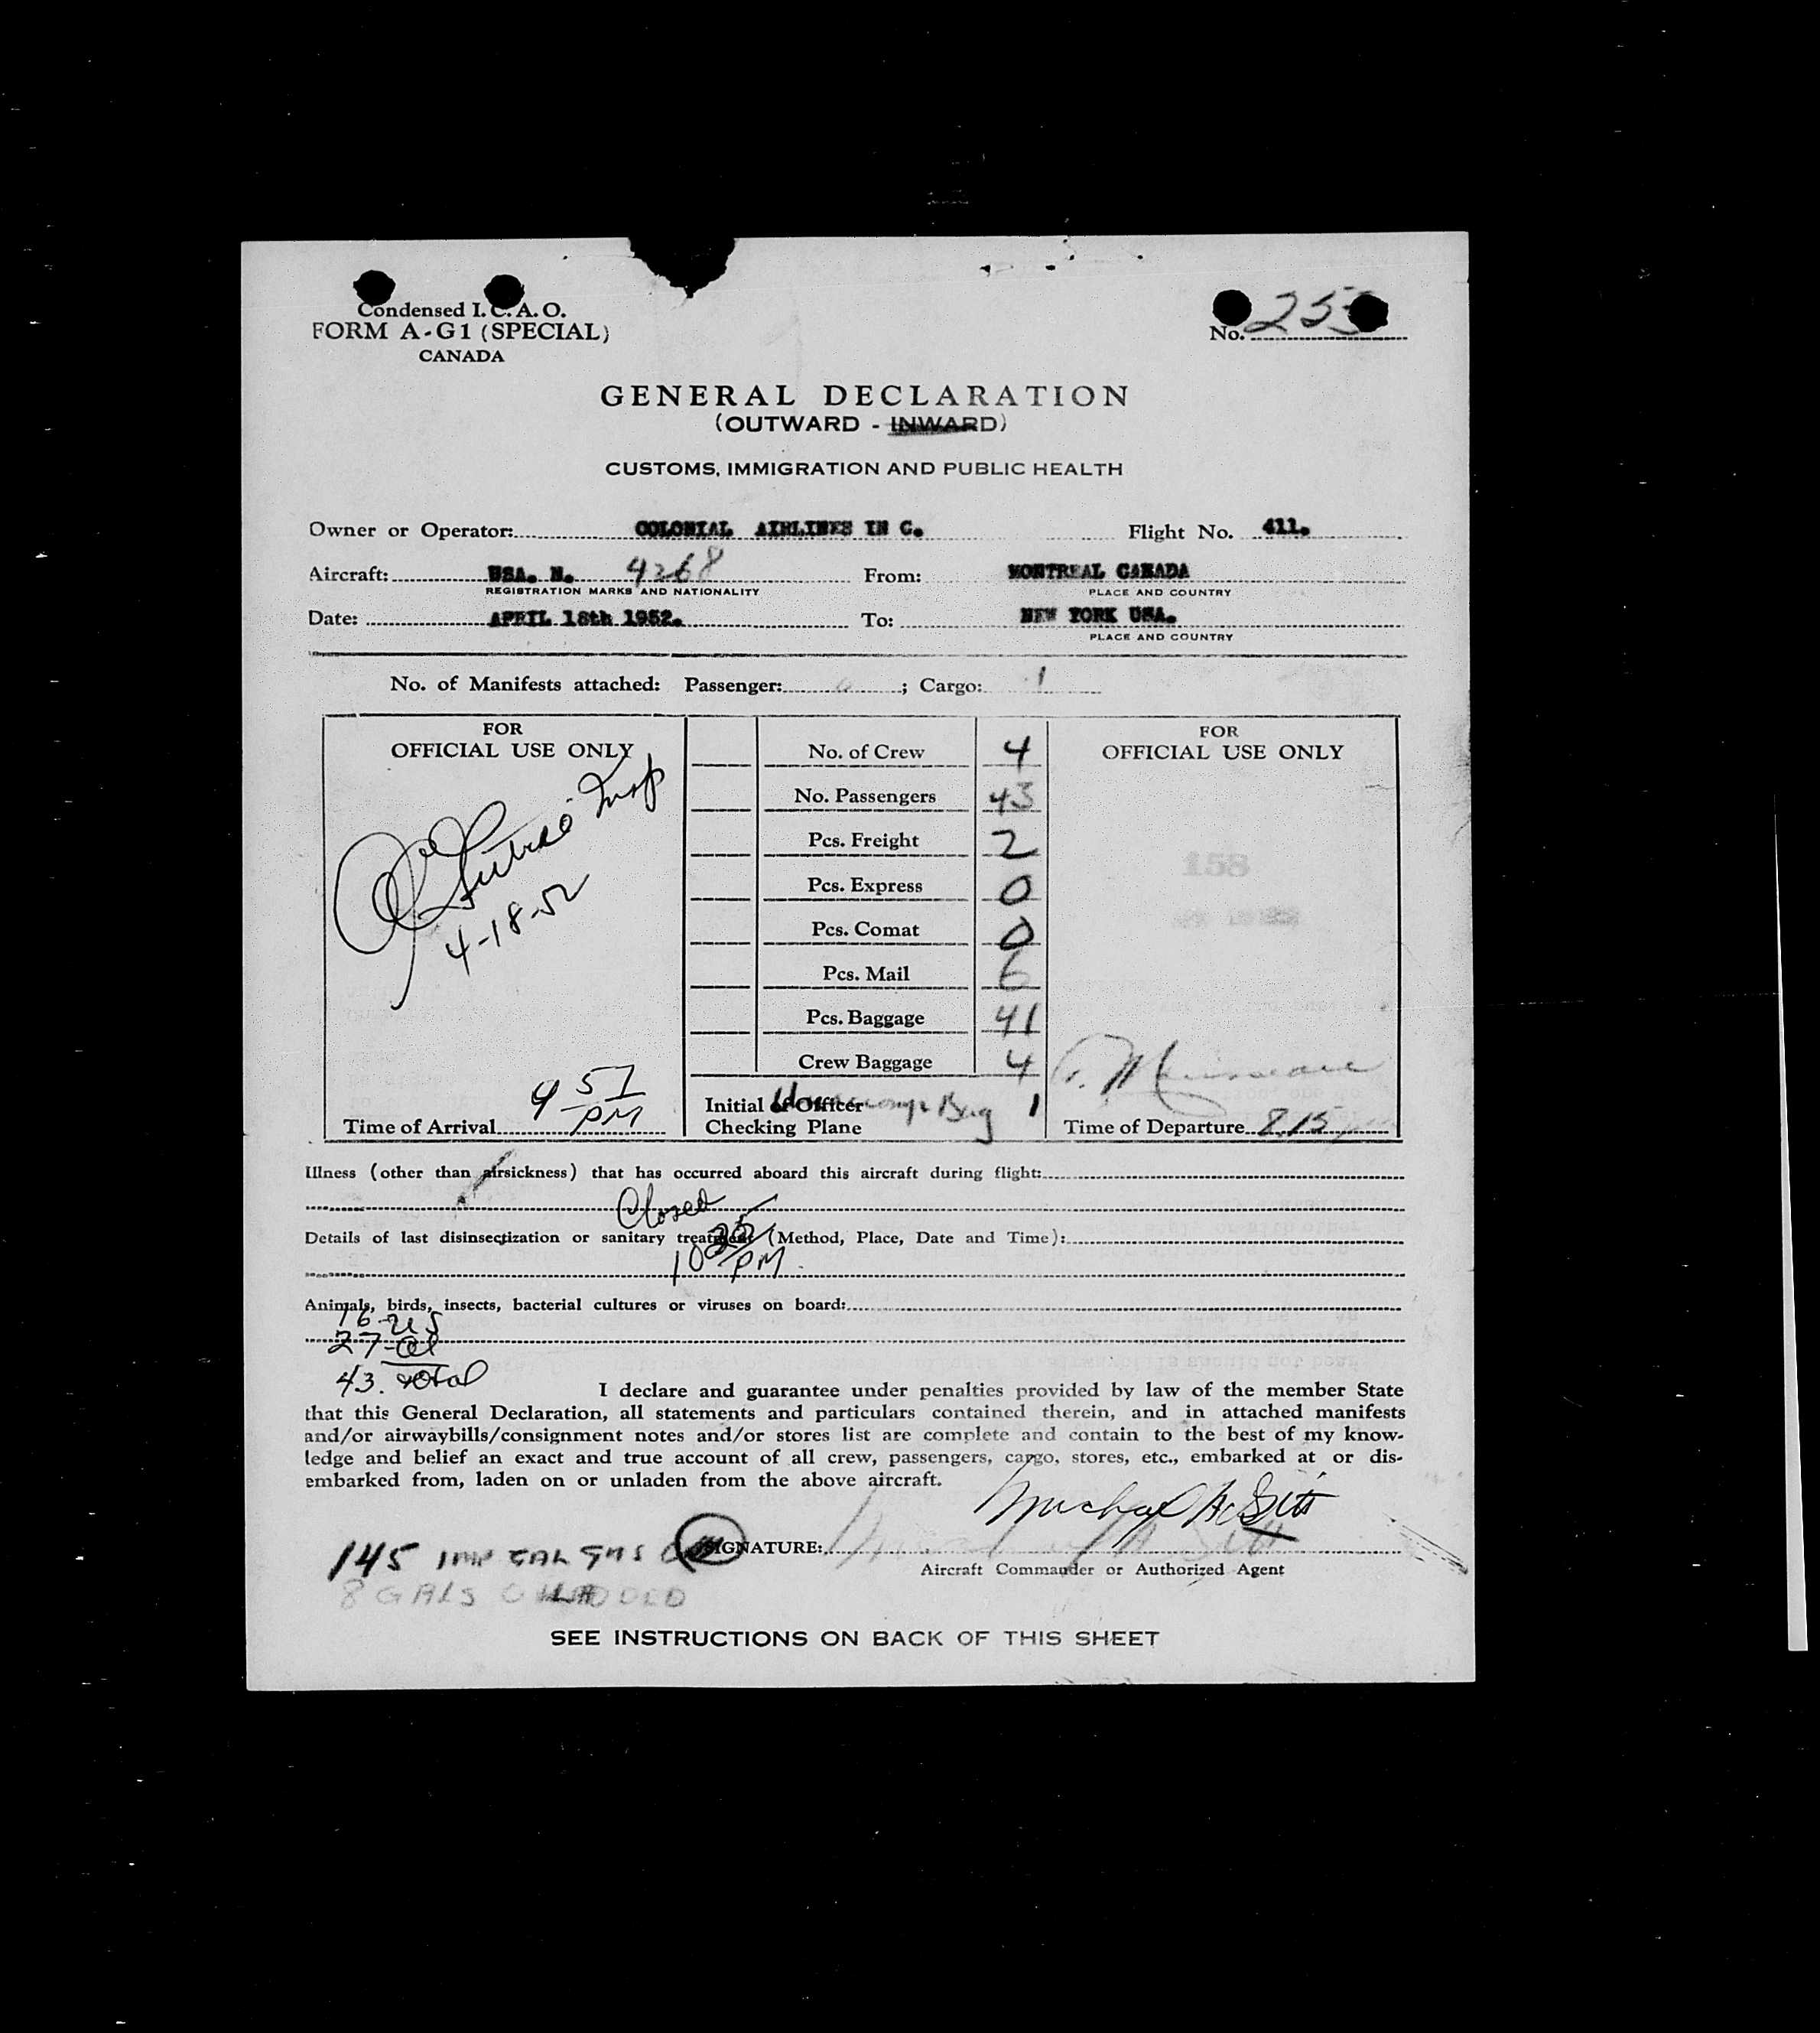 Condensed I.C.A.O.
FORM A-G1 (SPECIAL)
CANADA
No. 253
GENERAL DECLARATION
(OUTWARD - INWARD)
CUSTOMS, IMMIGRATION AND PUBLIC HEALTH
Owner or Operator: COLONIAL AIRLINES IN C. Flight No. 411.
Aircraft: USA. N. 4268 From: MONTREAL CANADA
REGISTRATION MARKS AND NATIONALITY PLACE AND COUNTRY
Date: APRIL 18th 1952. To: NEW YORK USA.
PLACE AND COUNTRY
No. of Manifests attached: Passenger: ; Cargo: 1
FOR
OFFICIAL USE ONLY
Insp
4-18-52
Time of Arrival 9 57 PM
No. of Crew 4
No. Passengers 43
Pcs. Freight 2
Pcs. Express 0
Pcs. Comat 0
Pcs. Mail 6
Pcs. Baggage 41
Crew Baggage 4
Initial of Officer Bag 1
Checking Plane
FOR
OFFICIAL USE ONLY
158
Time of Departure 8.15
Illness (other than airsickness) that has occurred aboard this aircraft during flight:
Closed
Details of last disinsectization or sanitary treatment (Method, Place, Date and Time):
10 35 PM
Animals, birds, insects, bacterial cultures or viruses on board:
16-US
27-al
43. total
I declare and guarantee under penalties provided by law of the member State
that this General Declaration, all statements and particulars contained therein, and in attached manifests
and/or airwaybills/consignment notes and/or stores list are complete and contain to the best of my know-
ledge and belief an exact and true account of all crew, passengers, cargo, stores, etc., embarked at or dis-
embarked from, laden on or unladen from the above aircraft.
145 IMP GAL GAS
SIGNATURE:
Aircraft Commander or Authorized Agent
8 GALS
SEE INSTRUCTIONS ON BACK OF THIS SHEET